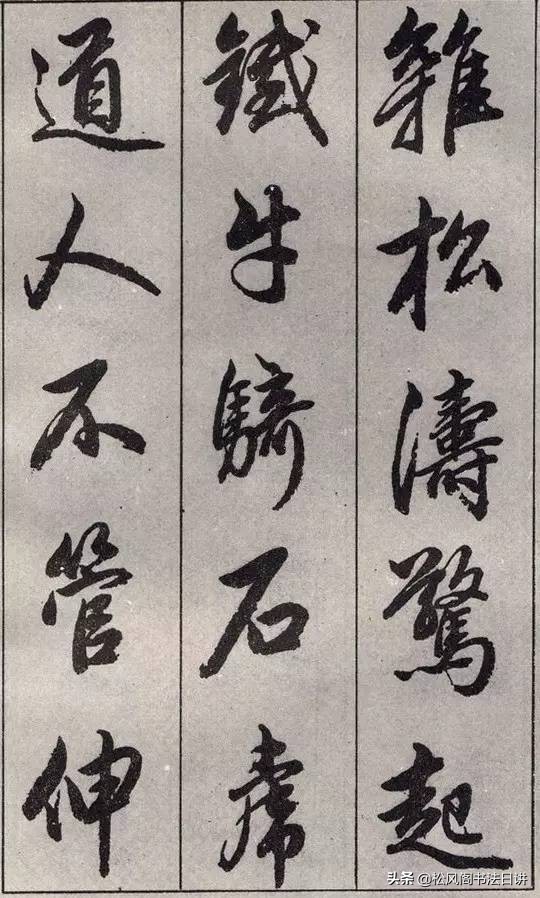 雜松濤驚起
鐵牛騎石席
道人不管伸
头条 @松风阁书法日讲